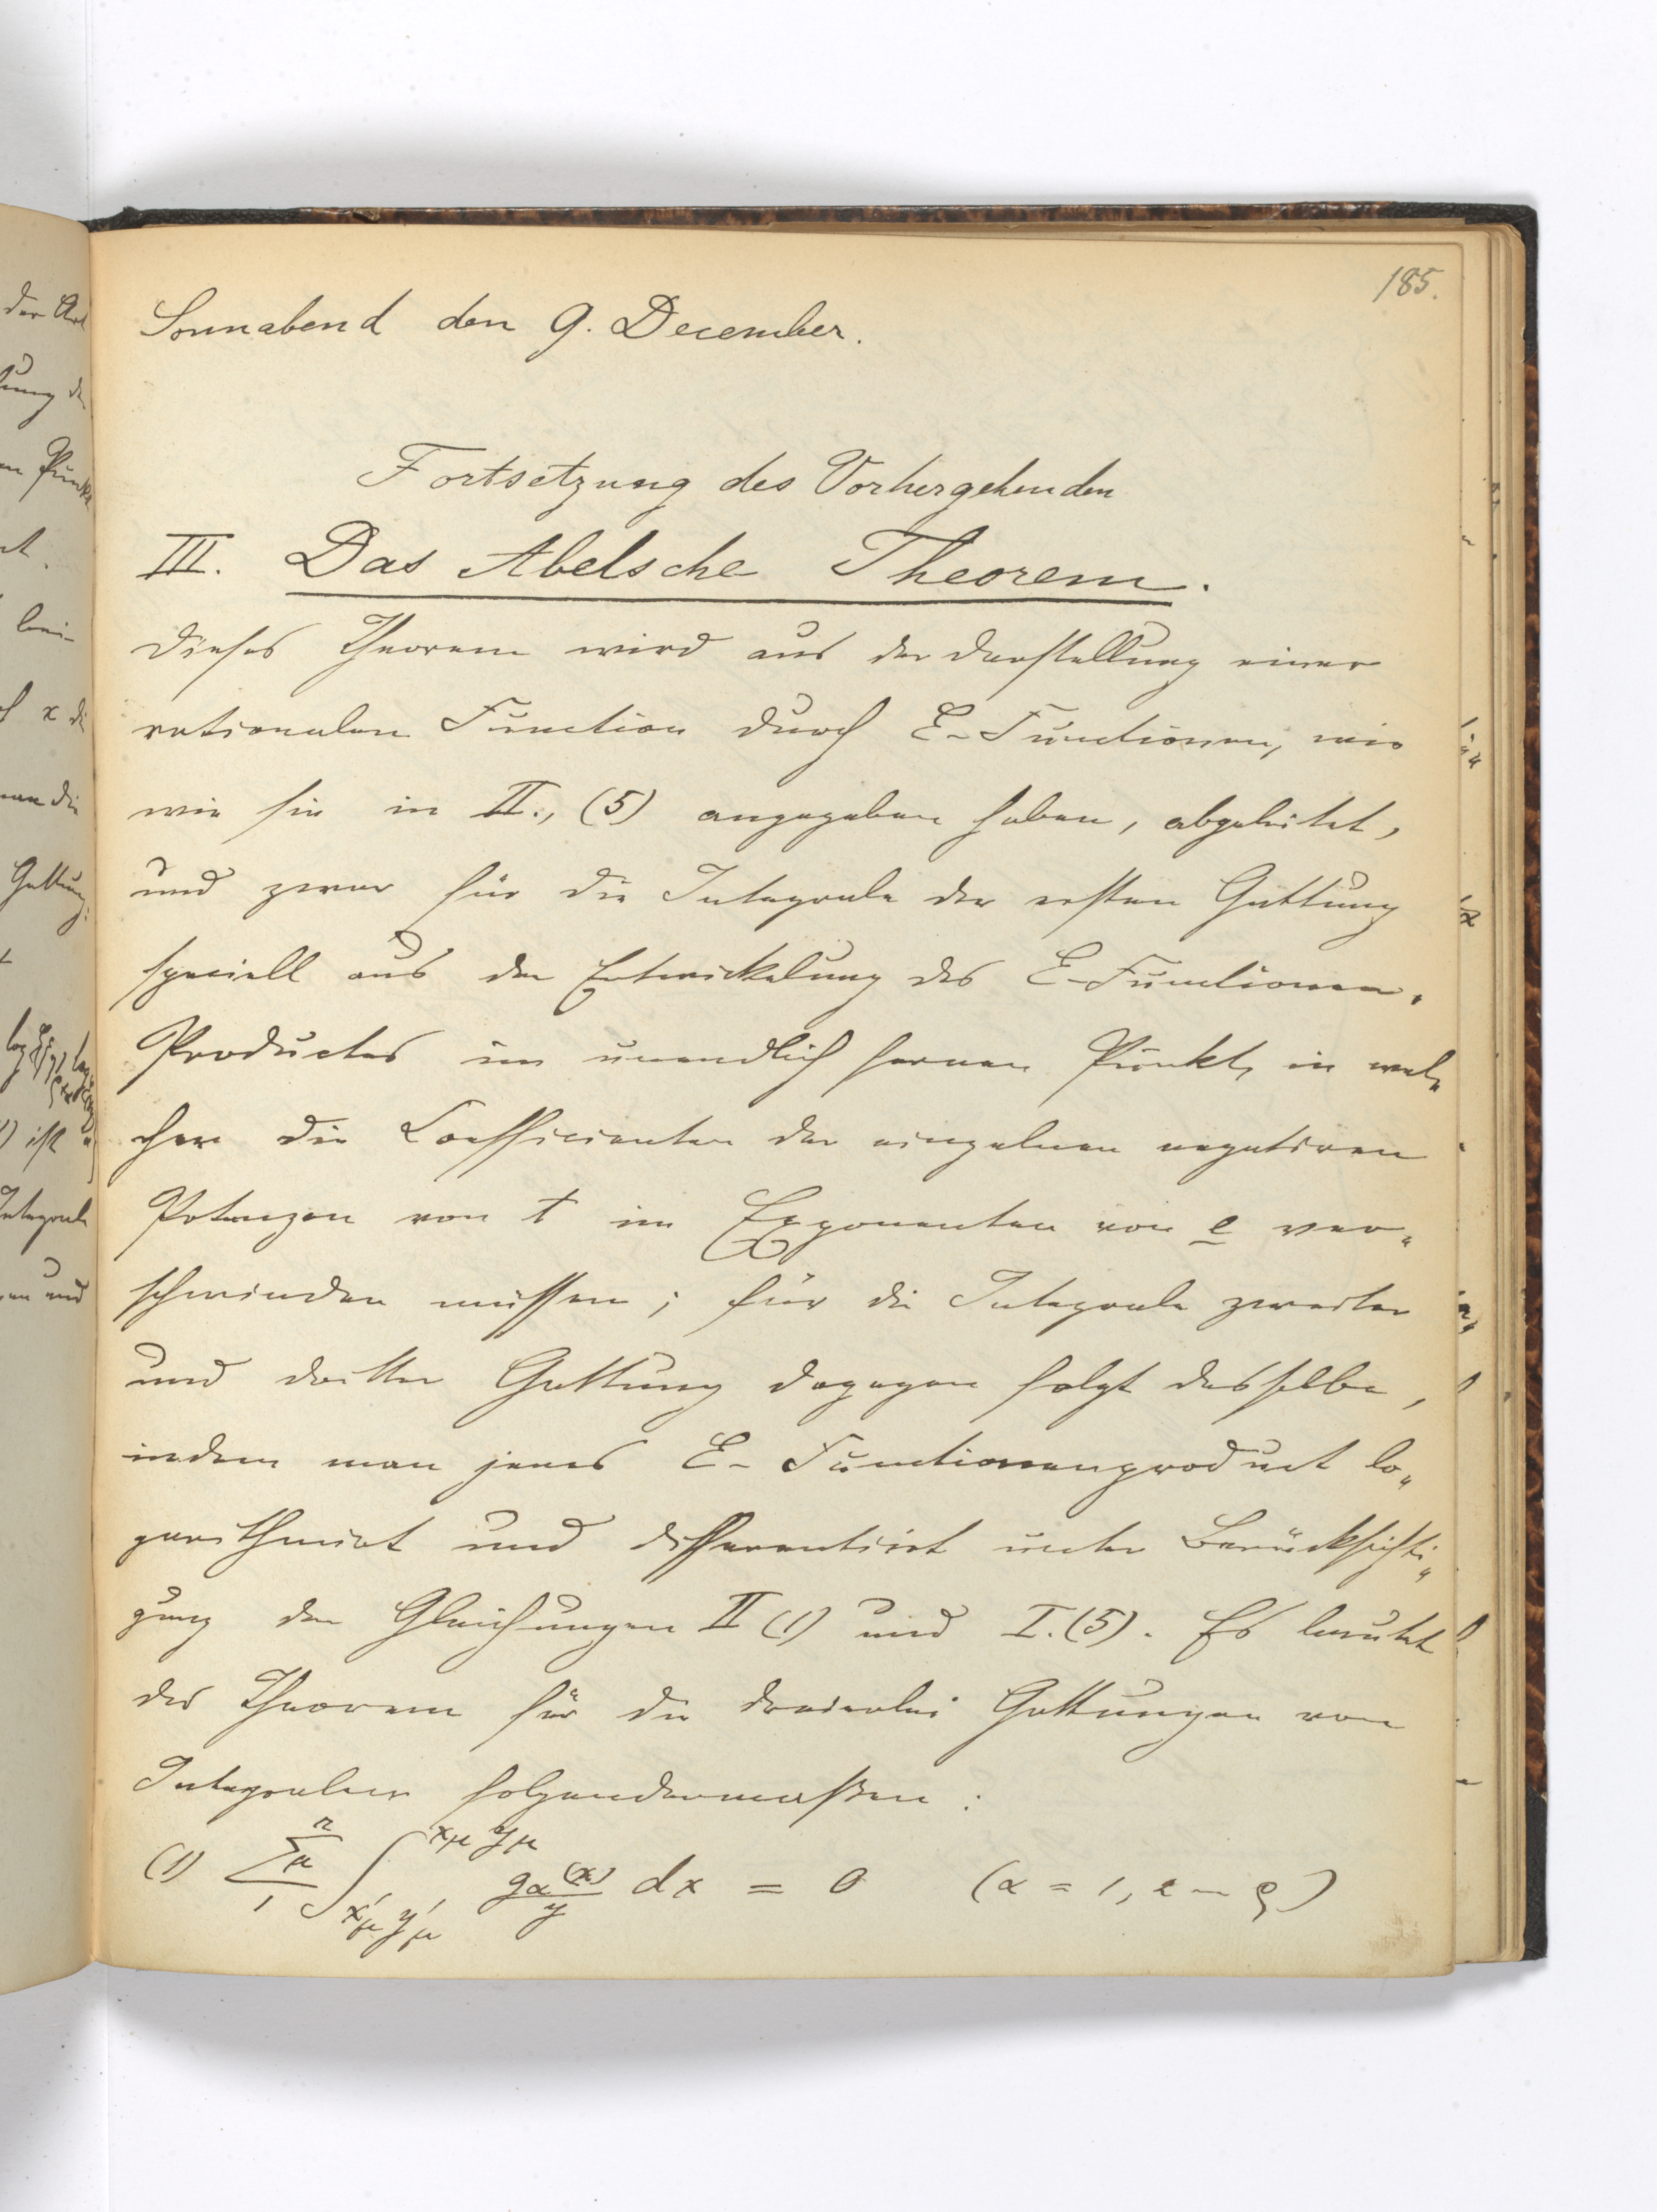 185.
Sonnabend den 9. December.
Fortsetzung des Vorhergehenden
III. Das Abelsche Theorem.
Dieses Theorem wird aus der Darstellung einer
rationalen Function durch E-Functionen, wie
wir sie in II., (5) angegeben haben, abgeleitet,
und zwar für die Integrale der ersten Gattung
speciell aus der Entwickelung des E-Functionen-
Productes im unendlich fernen Punkt, in wel-
cher die Coefficienten der einzelnen negativen
Potenzen von t im Exponenten von e ver-
schwinden müssen; für die Integrale zweiter
und dritter Gattung dagegen folgt dasselbe,
indem man jenes E-Functionenproduct lo-
garithmirt und differentiirt unter Berücksichti-
gung der Gleichungen II (1) und I.(5). Es lautet
das Theorem für die dreierlei Gattungen von
Integralen folgendermaßen:
(1) \sum_{1}^{n}{}_{\mu} \int_{x'_\mu y'_\mu}^{x_\mu y_\mu} \frac{g_\alpha(x)}{y} dx = 0 (α = 1, 2 — ρ)